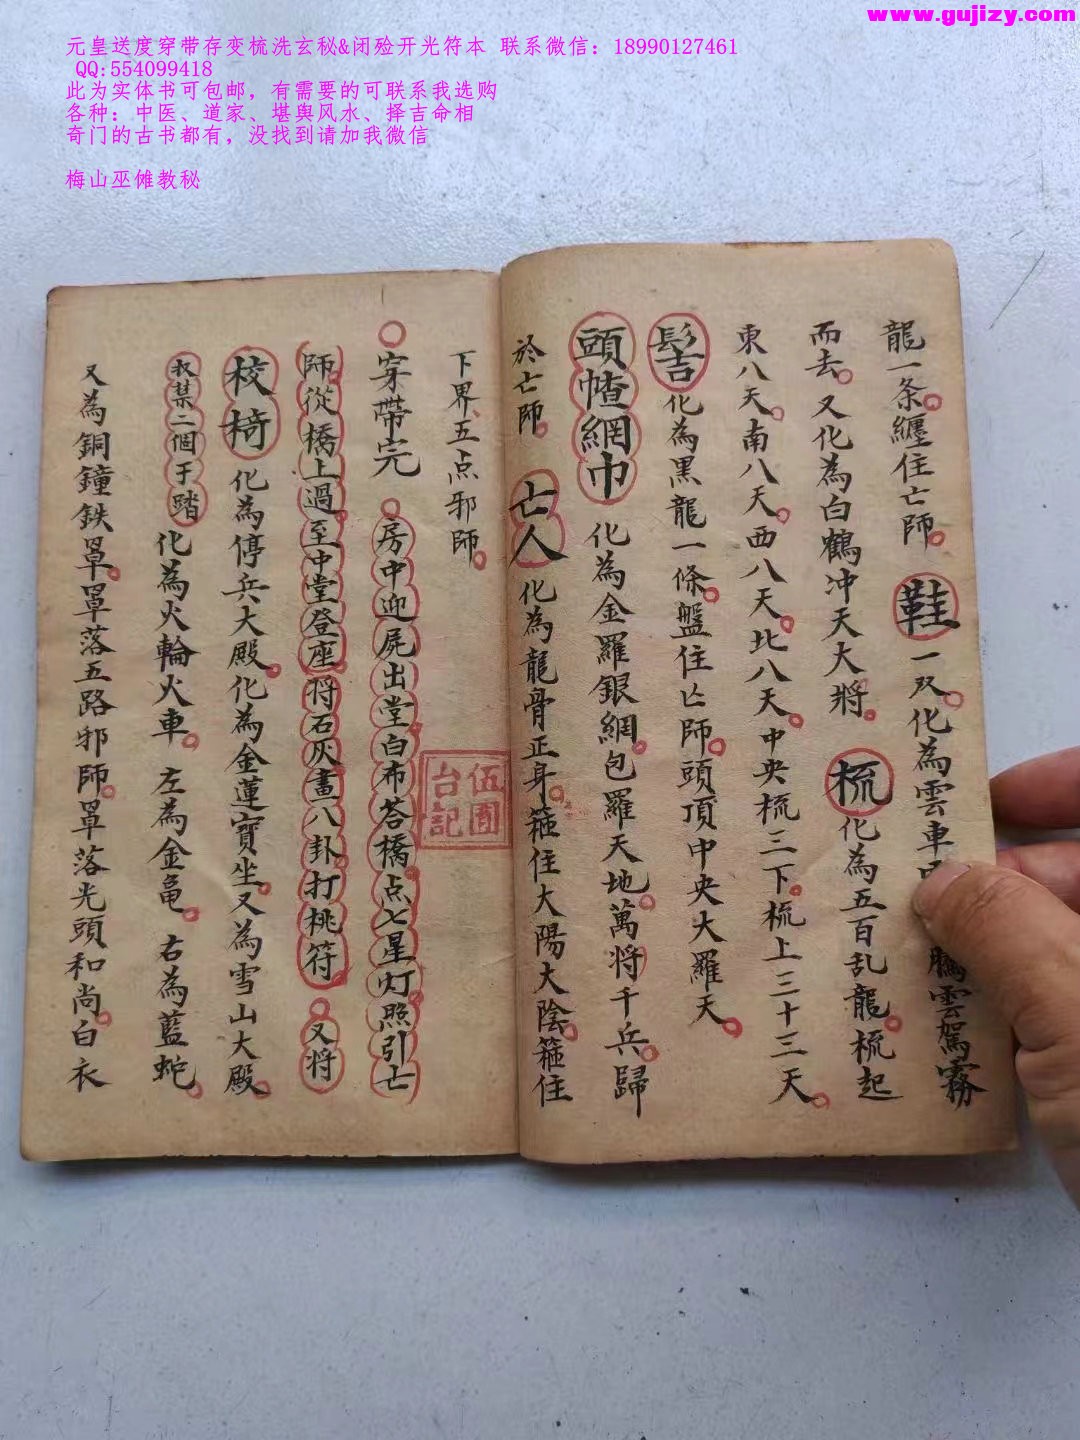 www.gujizy.com
元皇送度穿带存变梳洗玄秘&闭殓开光符本 联系微信：18990127461
QQ:554099418
此为实体书可包邮，有需要的可联系我选购
各种：中医、道家、堪舆风水、择吉命相
奇门的古书都有，没找到请加我微信
梅山巫傩教秘
龍一条。纏住亡師。鞋一双。化為雲車 騰雲駕霧
而去。又化為白鶴冲天大將。梳化為五百乱龍。梳起
東八天。南八天。西八天。北八天。中央梳三下。梳上三十三天。
髻化為黑龍一條。盤住亡師。頭頂中央大羅天。
頭幘網巾 化為金羅銀網。包羅天地。萬將千兵。歸
於亡師。亡人化為龍骨正身。箍住大陽大陰。箍住
下界、五点邪師。
○穿帶完 ○房中迎屍出堂白布荅橋。点七星灯照引亡
師。從橋上過。至中堂登座。将石灰畫八卦打桃符。○又将
校椅 化為停兵大殿。化為金蓮寶坐。又為雪山大殿。
衣禁二個手踏 化為火輪火車。左為金龟。右為藍蛇。
又為銅鐘鉄罩。罩落五路邪師。罩落光頭和尚。白衣
伍圃
台記